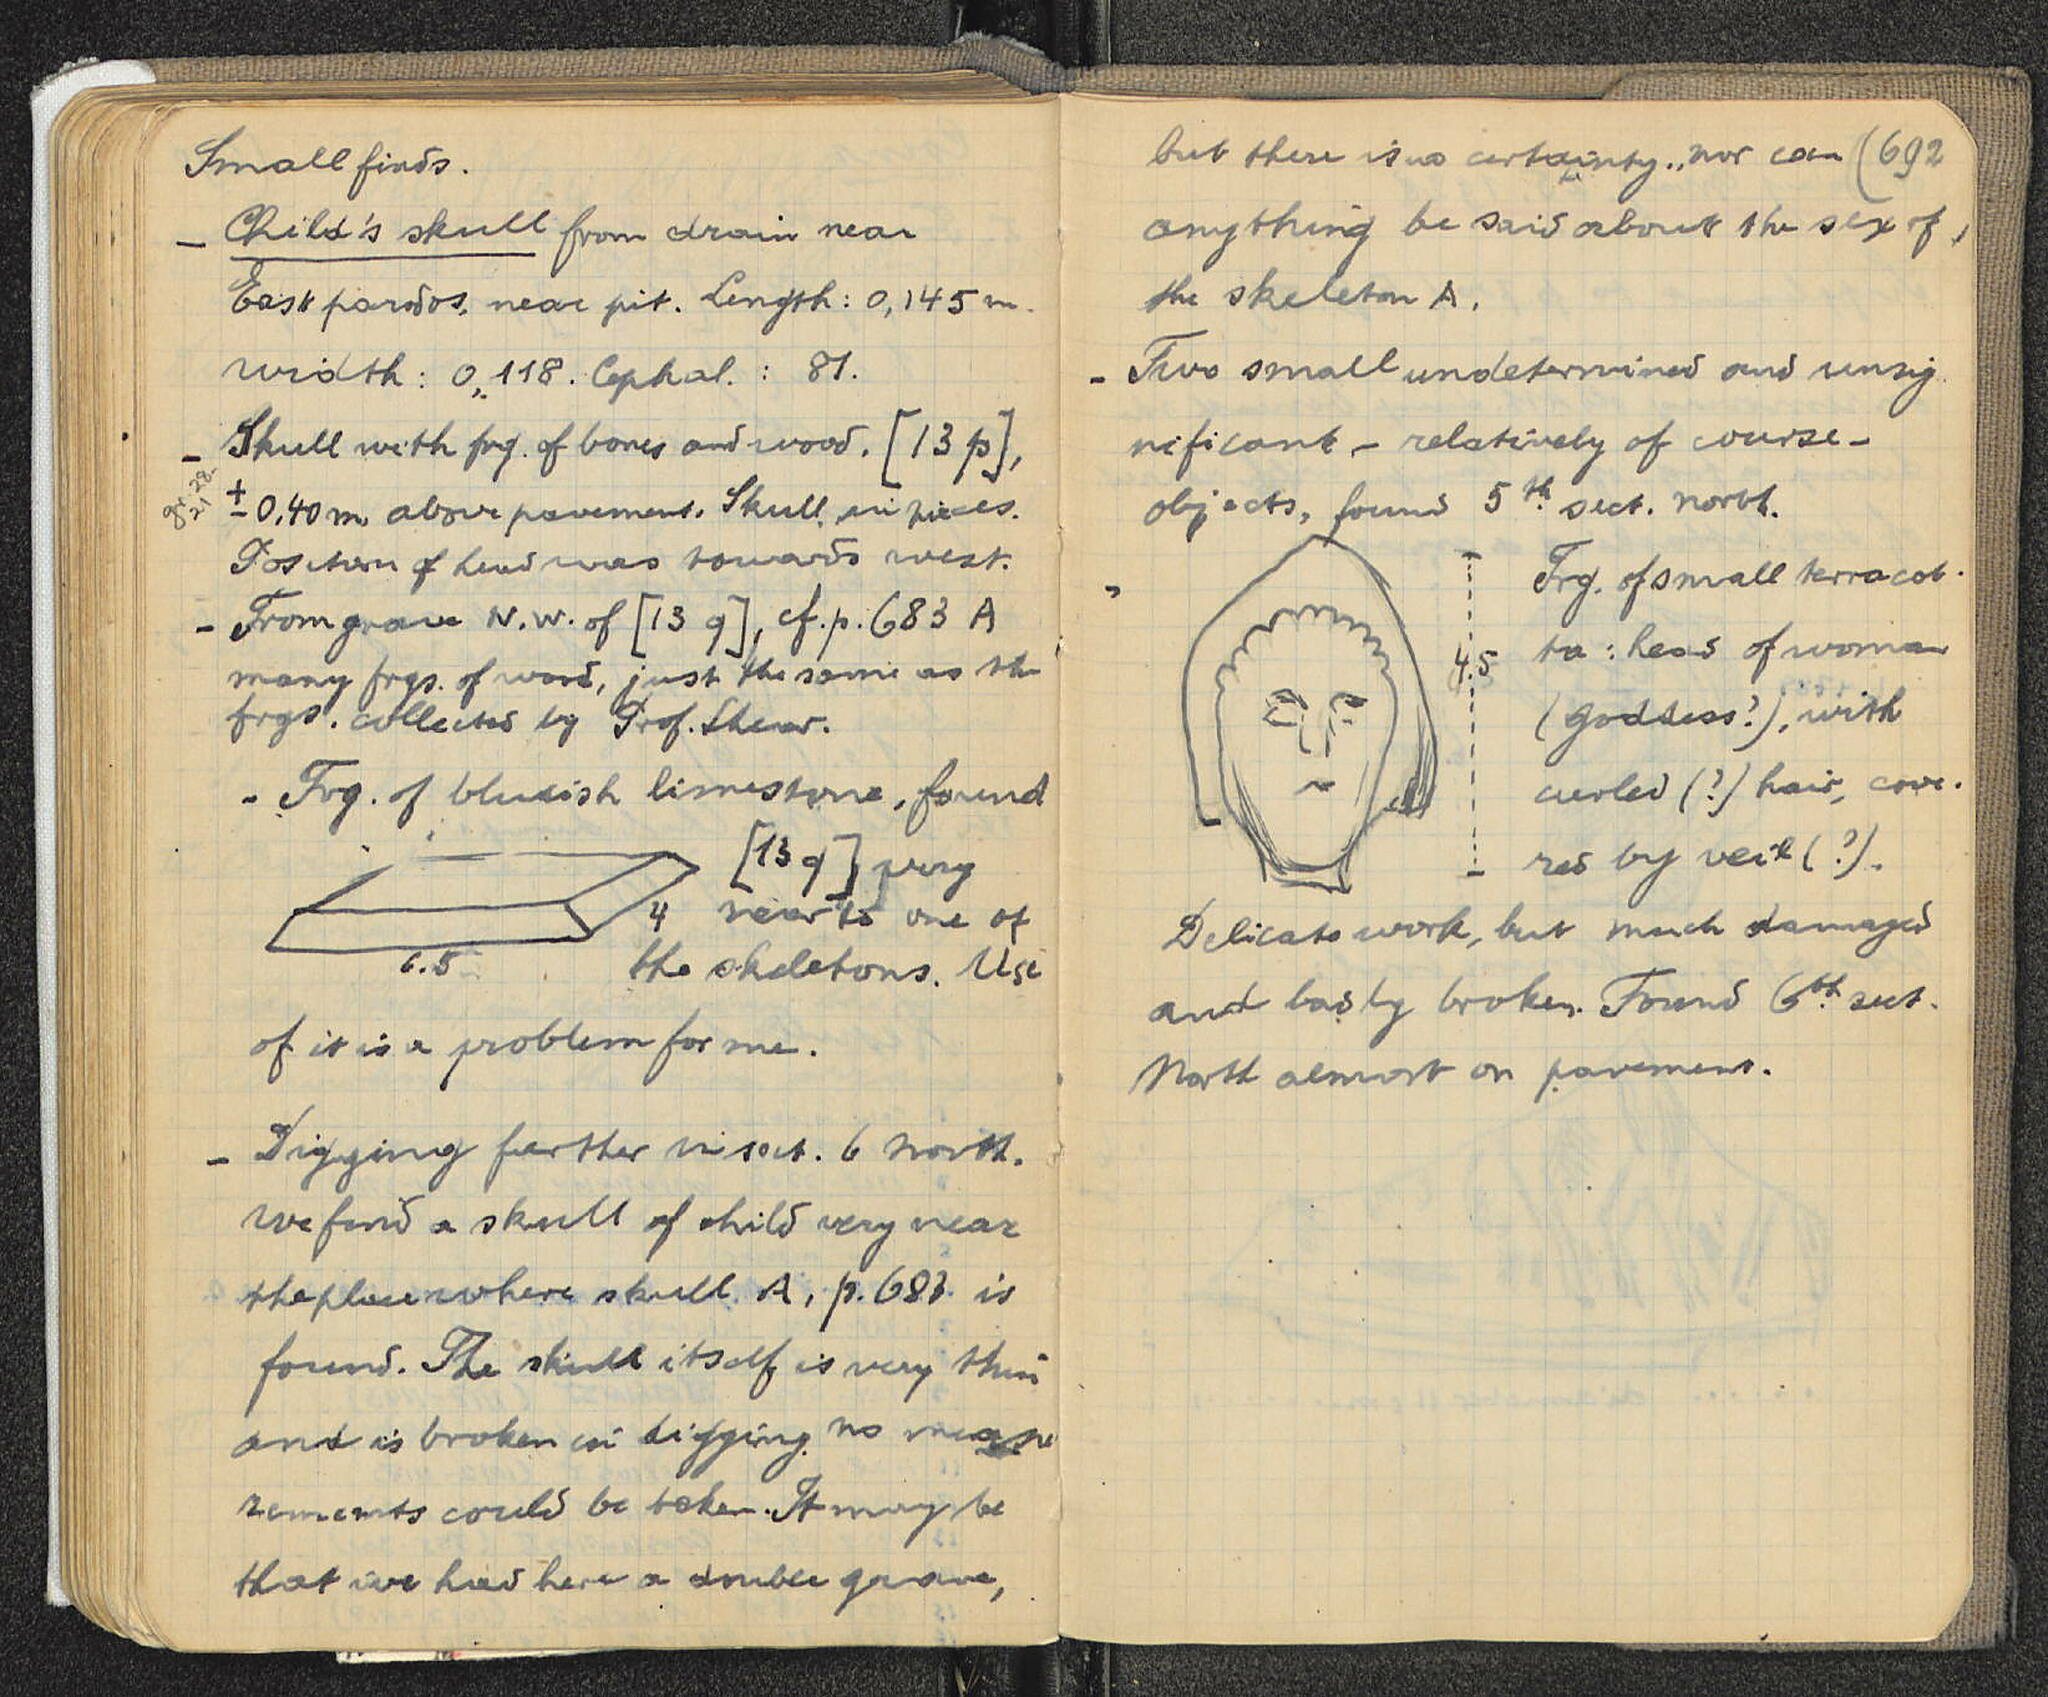 Small finds.
- Child's skull from drain near
East parodos, near pit. Length: 0,145 m.
width: 0,118. Cephal.: 81.
- Skull with frg. of bones and wood. [13 p],
gr. 28
21
± 0,40 m above pavement. Skull in pieces.
Position of head was towards west.
- From grave N.W. of [13 q], cf. p. 683 A
many frgs. of wood, just the same as the
frgs. collected by Prof. Shear.
- Frg. of blueish limestone, found
[13 q] very
4 near to one of
6.5 the skeletons. Use
of it is a problem for me.
- Digging farther in sect. 6 north.
we find a skull of child very near
the place where skull A, p. 683 is
found. The skull itself is very thin
and is broken in digging. no measu
rements could be taken. It may be
that we had here a double grave,
but there is no certainty, nor can (692
anything be said about the sex of
the skeleton A.
- Two small undetermined and unsig
nificant - relatively of course -
objects, found 5th sect. north.
- Frg. of small terracot-
4.5 ta: head of woman
(goddess?), with
curled (?) hair, cove-
red by veil (?).
Delicate work, but much damaged
and badly broken. Found 6th sect.
North almost on pavement.